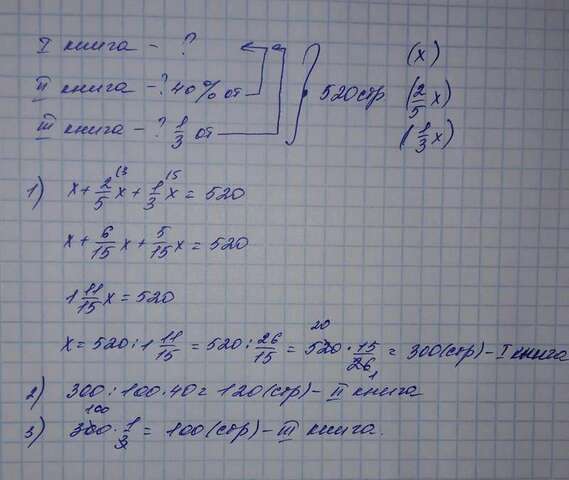 I книга - ? (x)
II книга - ? 40% от 520 стр (2/5 x)
III книга - ? 1/3 от (1/3 x)
1) x + 2/5 (3 x + 1/3 (5 x = 520
x + 6/15 x + 5/15 x = 520
1 11/15 x = 520
x = 520 : 1 11/15 = 520 : 26/15 = 520 20 · 15/26 1 = 300 (стр) - I книга
2) 300 : 100 · 40 = 120 (стр) - II книга
3) 300 100 · 1/3 = 100 (стр) - III книга.